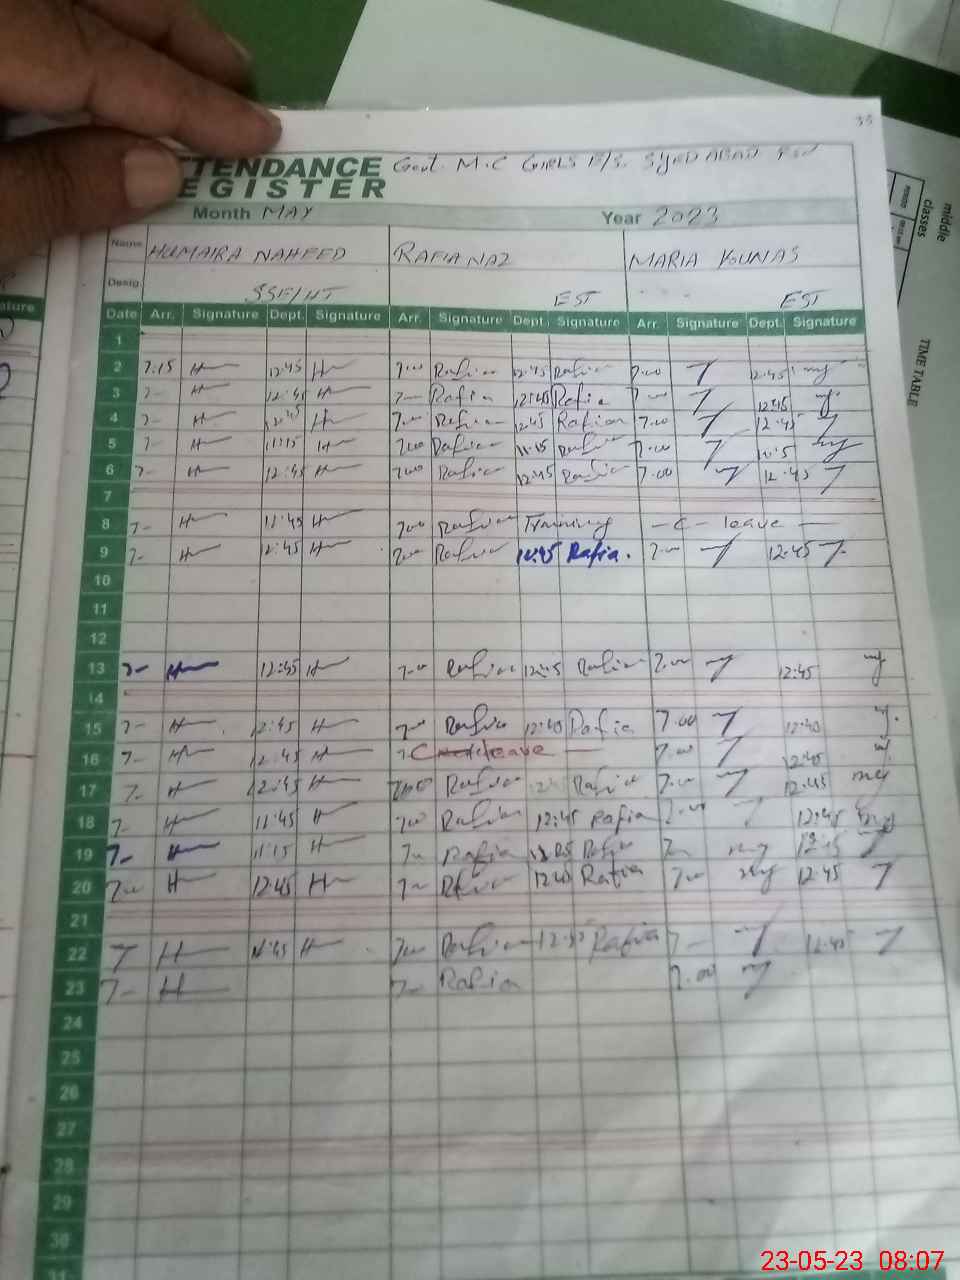 35
TTENDANCE Govt. M.C GIRLS E/S. SYED ABAD
EGISTER
Month MAY Year 2023
Name HUMAIRA NAHEED RAFIA NAZ MARIA YOUNAS
Desig. SSE/HT EST EST
Date Arr. Signature Dept. Signature Arr. Signature Dept. Signature Arr. Signature Dept. Signature
1
2 7:15 H 12:45 H 7:00 Rafia 12:45 Rafia 7:00 12:45 my
3 7- H 12:45 H 7- Rafia 12:40 Rafia 7:00 12:45 my
4 7- H 12:45 H 7:00 Rafia 12:45 Rafia 7:00 12:45
5 7- H 11:15 H 7:00 Rafia 11:15 Rafia 7:00 my
6 7- H 12:45 H 7:00 Rafia 12:45 Rafia 7:00 12:45
7
8 7- H 11:45 H 7:00 Rafia Training - C - leave -
9 7- H 12:45 H 7:00 Rafia 12:45 Rafia. 7:00 12:45
10
11
12
13 7- H 12:45 H 7:00 Rafia 12:45 Rafia 7:00 my 12:45 my
14
15 7- H 12:45 H 7:00 Rafia 12:40 Rafia 7.00 12:40
16 7- H 12:45 H leave 7:00 12:40
17 7- H 12:45 H Rafia Rafia 7:00 my 12:45 my
18 7- H 11:45 H 7:00 Rafia 12:45 Rafia 12:45 my
19 7- H 11:15 H 7- Rafia Rafia my
20 7:00 H 12:45 H 7- Rafia 12:40 Rafia 7:00 my 12:45
21
22 7 H 11:45 H 7:00 Rafia Rafia 7- 12:45
23 7- H 7- Rafia 7.00 my
24
25
26
27
28
29
30
31
ature
middle
classes
PERIOD
TIME TABLE
23-05-23 08:07